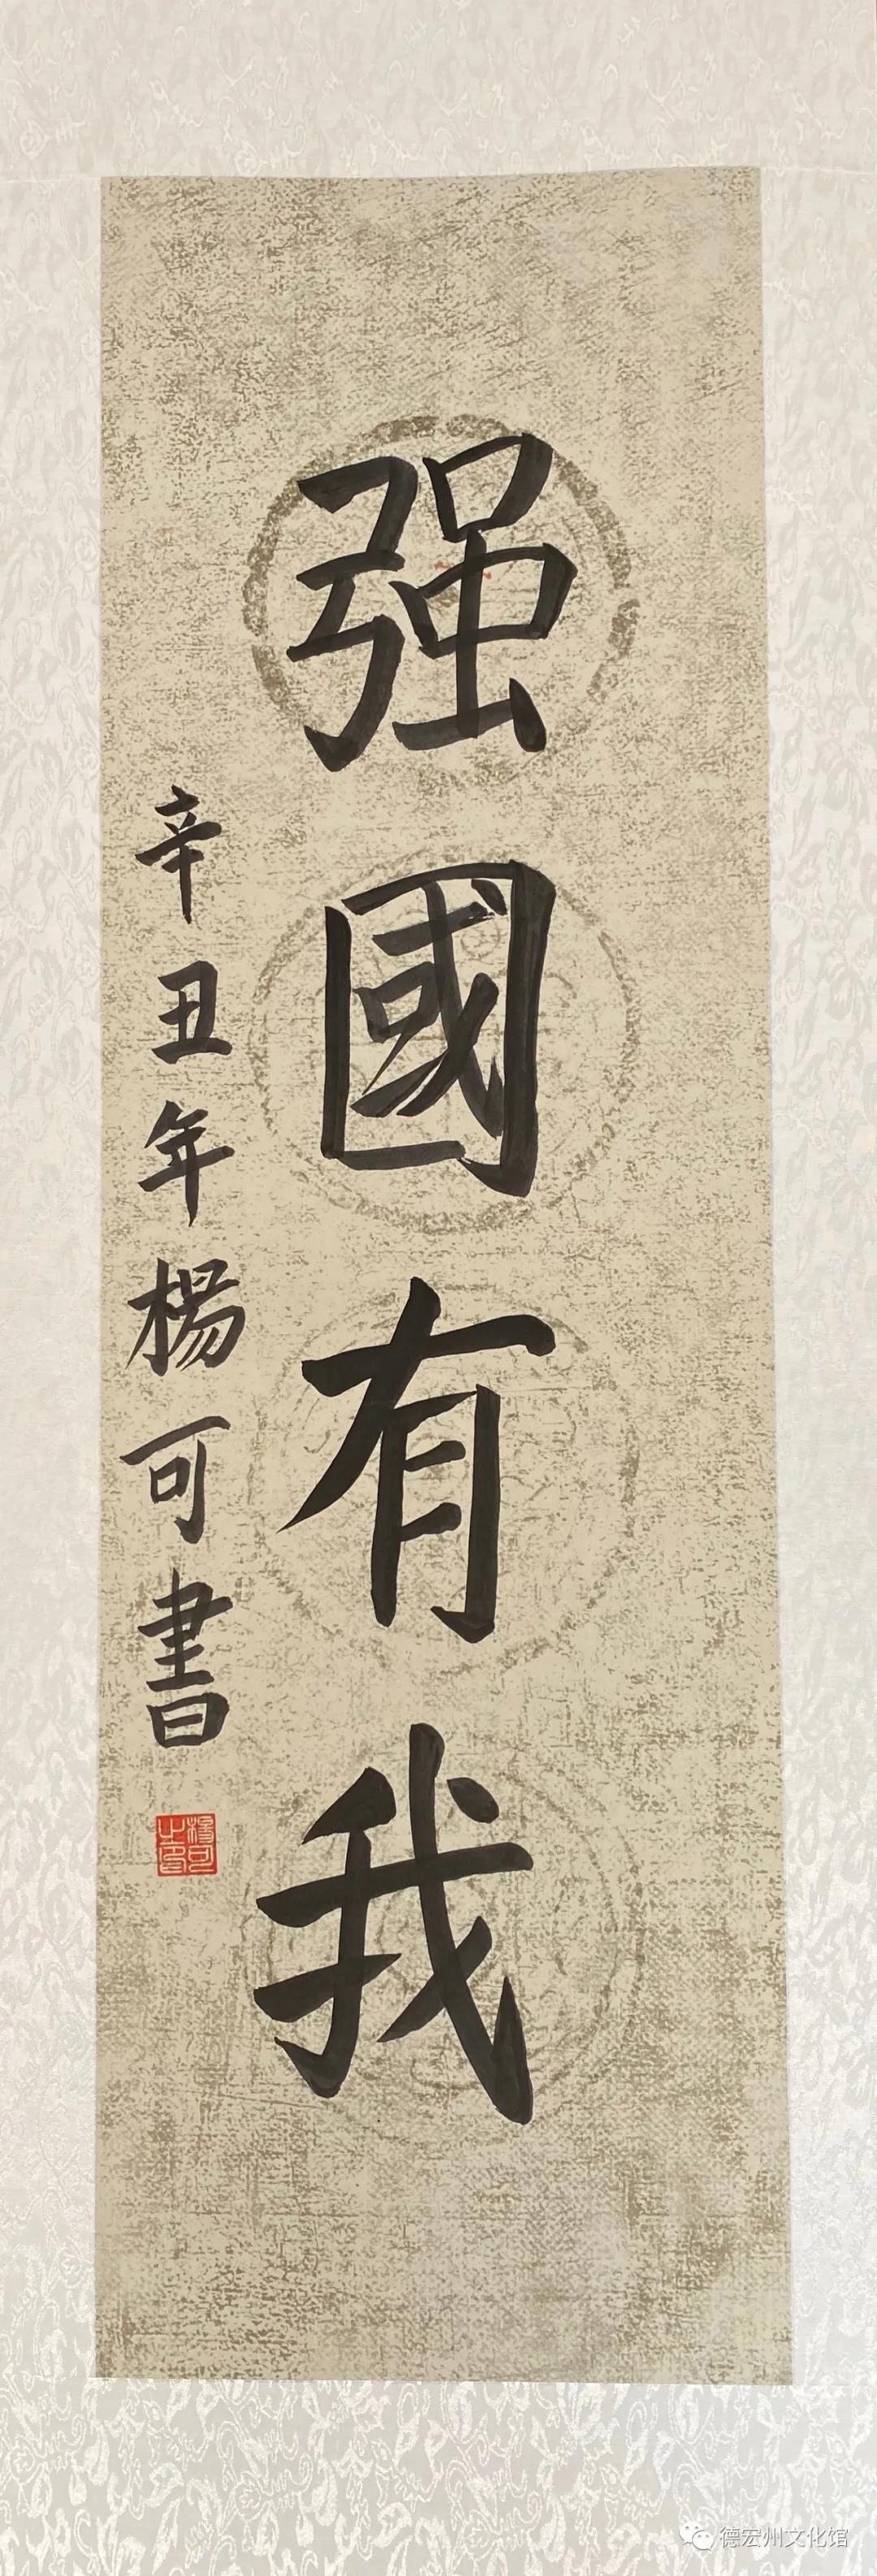 强國有我
辛丑年楊可書
楊可之印
德宏州文化馆